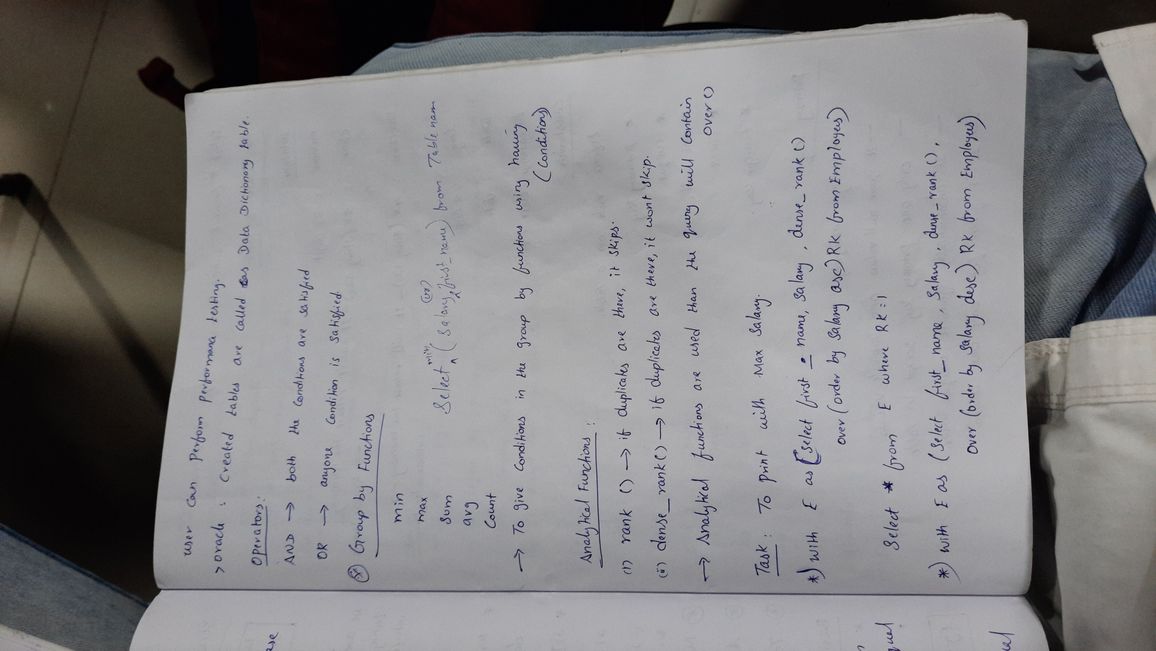 user can perform performana testing.
> oracle : Created tables are called as Data Dictionary table.
Operators:
AND → both the Conditions are satisfied
OR → anyone Condition is satisfied.
* Group by Functions
min
max
Sum
avg
Count
Select min (Salary (or) first_name) from Table name
→ To give Conditions in the group by functions using having
(Conditions)
Analytical Functions :
(i) rank () → if duplicates are there, it skips.
(ii) dense_rank() → if duplicates are there, it wont skip.
→ Analytical functions are used than the query will contain
over()
Task : To print with Max Salary.
*) with E as (Select first_name, Salary, dense_rank()
over (order by Salary asc) RK from Employees)
Select * from E where RK=1
*) with E as (Select first_name, Salary, dense_rank(),
over (order by Salary desc) RK from Employees)
ase
qual
ual